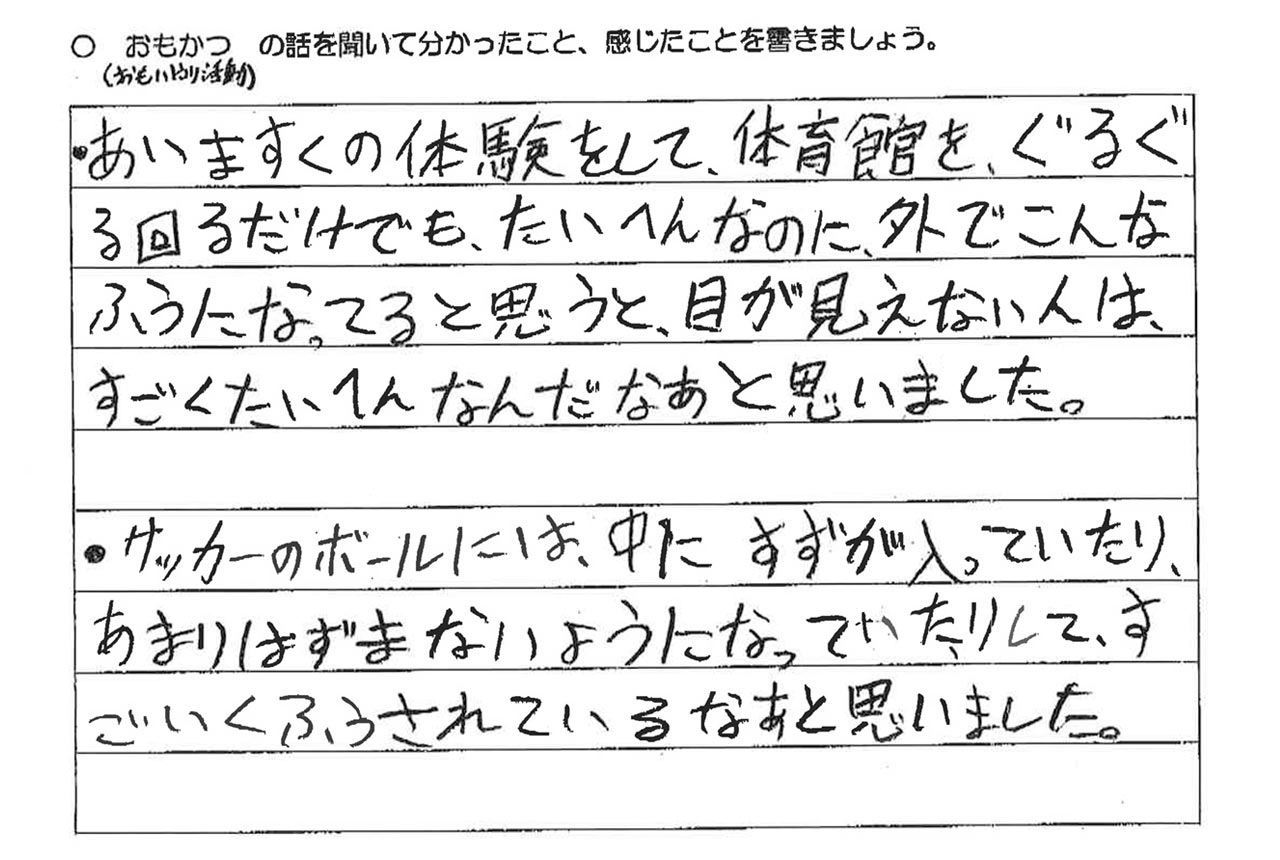 ○　おもかつ　の話を聞いて分かったこと、感じたことを書きましょう。
(おもいやり活動)
・あいますくの体験をして、体育館を、ぐるぐ
る回るだけでも、たいへんなのに、外でこんな
ふうになってると思うと、目が見えない人は、
すごくたいへんなんだなあと思いました。
・サッカーのボールには、中にすずが入っていたり、
あまりはずまないようになっていたりして、す
ごいくふうされているなあと思いました。